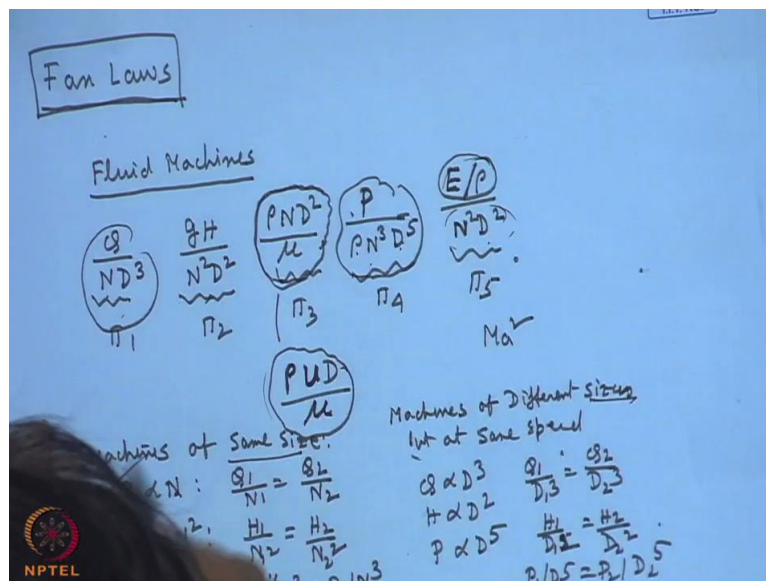 Fan Laws
Fluid Machines
Q/ND³ gH/N²D² ρND²/μ P/ρN³D⁵ E/ρ/N²D²
π₁ π₂ π₃ π₄ π₅
Ma²
ρUD/μ
Machines of Same Size:
∝ N : Q₁/N₁ = Q₂/N₂
H₁/N₁² = H₂/N₂²
N³
Machines of Different sizes
but at same speed
Q ∝ D³ Q₁/D₁³ = Q₂/D₂³
H ∝ D² H₁/D₁² = H₂/D₂²
P ∝ D⁵ P₁/D₁⁵ = P₂/D₂⁵
NPTEL